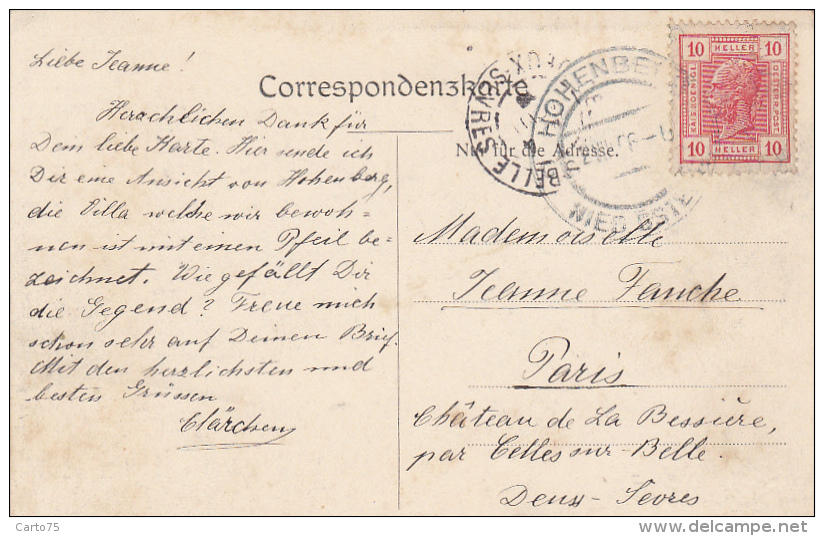 Liebe Jeanne!
Herzchlichen Dank für
Dem liebe Karte. Hier sende ich
Dir eine Ansicht von Hohenberg,
die Villa welche wir bewoh=
nen ist mit einen Pfeil be-
zeichnet. Wie gefällt Dir
die Gegend? Freue mich
schon sehr auf Deinen Brief.
Mit den herzlichsten und
besten Grüssen
Clärchen
Correspondenzkarte
Nur für die Adresse.
Mademoiselle
Jeanne Fauche
Paris
Château de La Bessière,
par Celles sur Belle.
Deux-Sevres
10 HELLER 10
KAIS. KOENIGL. OESTERR. POST
10 HELLER 10
HOHENBERG
NIED. ÖSTE
BELLE
SÈVRES
Carto75
delcampe.net